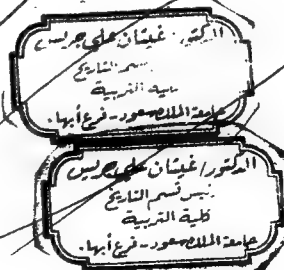 الدكتور. غيثان علي جريس
قسم التاريخ
كلية التربية
جامعة الملك سعود - فرع أبها.
الدكتور/ غيثان علي جريس
رئيس قسم التاريخ
كلية التربية
جامعة الملك سعود - فرع أبها.